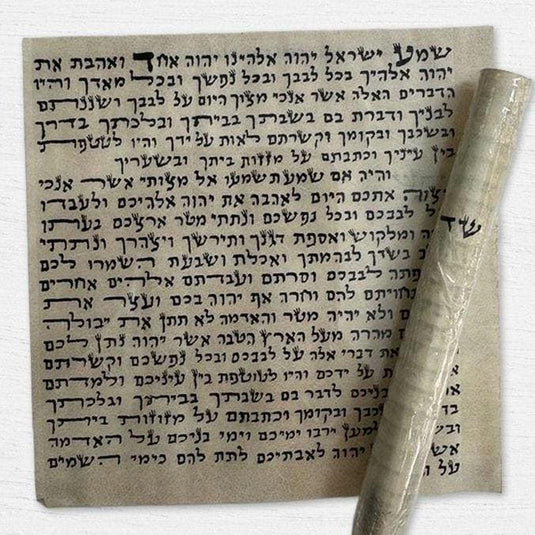 שמע ישראל יהוה אלהינו יהוה אחד ואהבת את
יהוה אלהיך בכל לבבך ובכל נפשך ובכל מאדך והיו
הדברים האלה אשר אנכי מצוך היום על לבבך ושננתם
לבניך ודברת בם בשבתך בביתך ובלכתך בדרך
ובשכבך ובקומך וקשרתם לאות על ידך והיו לטטפת
בין עיניך וכתבתם על מזזות ביתך ובשעריך
והיה אם שמע תשמעו אל מצותי אשר אנכי
מצוה אתכם היום לאהבה את יהוה אלהיכם ולעבדו
לבבכם ובכל נפשכם ונתתי מטר ארצכם בעתו
ומלקוש ואספת דגנך ותירשך ויצהרך ונתתי
בשדך לבהמתך ואכלת ושבעת השמרו לכם
לבבכם וסרתם ועבדתם אלהים אחרים
להם וחרה אף יהוה בכם ועצר את
ולא יהיה מטר והאדמה לא תתן את יבולה
מהרה מעל הארץ הטבה אשר יהוה נתן לכם
את דברי אלה על לבבכם ועל נפשכם וקשרתם
על ידכם והיו לטוטפת בין עיניכם ולמדתם
בניכם לדבר בם בשבתך בביתך ובלכתך
ובקומך וכתבתם על מזוזות ביתך
למען ירבו ימיכם וימי בניכם על האדמה
יהוה לאבתיכם לתת להם כימי השמים
על
שד